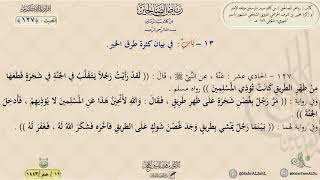 رياض الصالحين
الحديث : (( ١٢٧ ))
١٣ - باب : في بيان كثرة طرق الخير.
١٢٧ - الحادي عشر : عنه ، عن النبي ﷺ ، قال : (( لقد رأيت رجلاً يتقلب في الجنة في شجرة قطعها
من ظهر الطريق كانت تؤذي المسلمين )) رواه مسلم .
وفي رواية : (( مر رجل بغصن شجرة على ظهر طريق ، فقال : والله لأنحين هذا عن المسلمين لا يؤذيهم ، فأدخل
الجنة )) .
وفي رواية لهما : (( بينما رجل يمشي بطريق وجد غصن شوك على الطريق فأخره فشكر الله له ، فغفر له )) .
١٦ / صفر / ١٤٤٣هـ